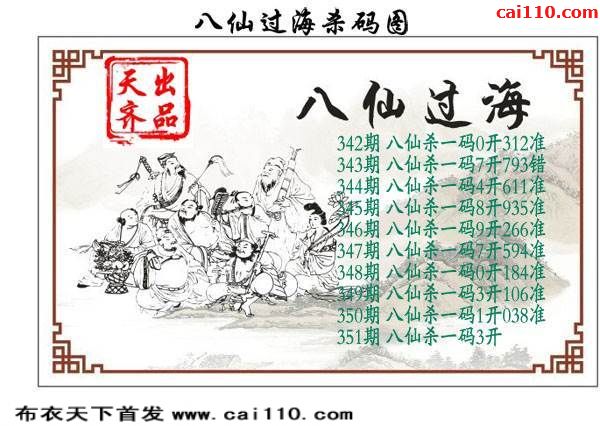 八仙过海杀码图
cai110.com
天齐
出品
八仙过海
342期 八仙杀一码0开312准
343期 八仙杀一码7开793错
344期 八仙杀一码4开611准
345期 八仙杀一码8开935准
346期 八仙杀一码9开266准
347期 八仙杀一码7开594准
348期 八仙杀一码0开184准
349期 八仙杀一码3开106准
350期 八仙杀一码1开038准
351期 八仙杀一码3开
布衣天下首发 www.cai110.com